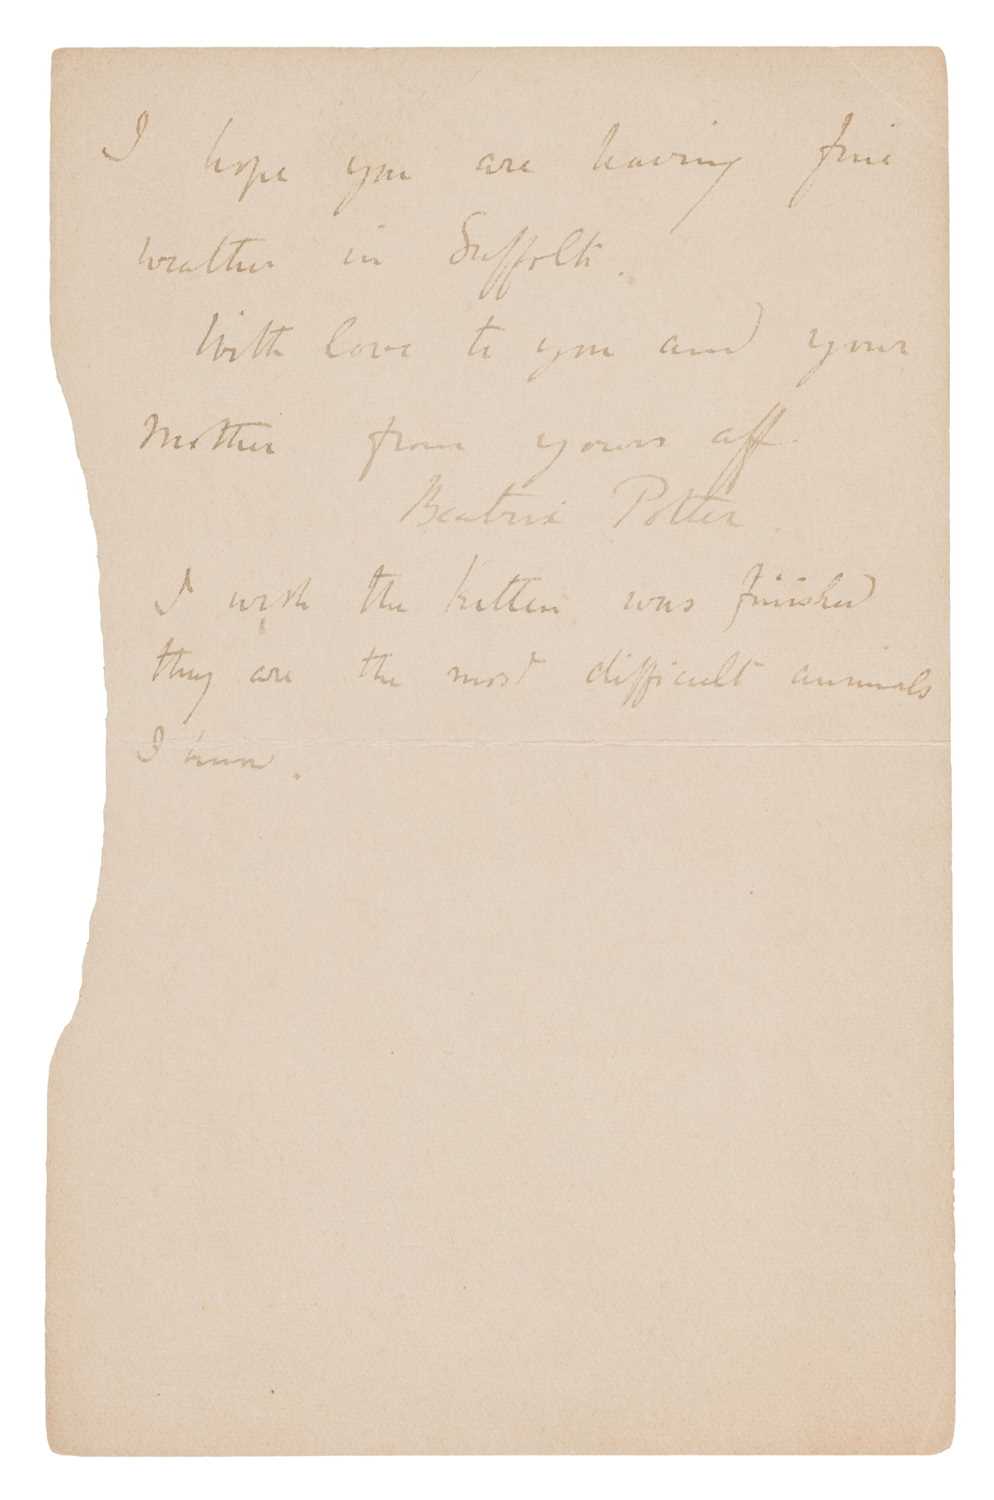 I hope you are having fine
weather in Suffolk.
With love to you and your
Mother from yours aff.
Beatrix Potter.
I wish the kitten was finished
they are the most difficult animals
I know.